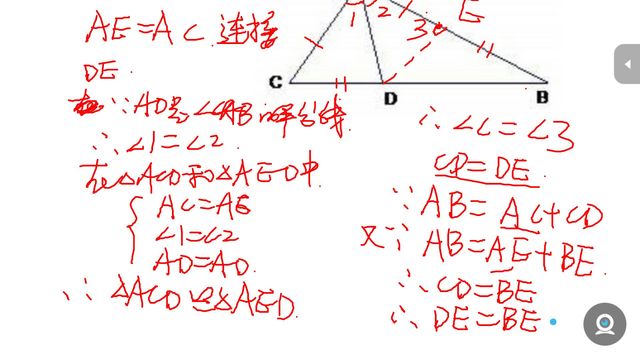 AE=AC.连接
DE.
∵AD是∠CAB的平分线
∴∠1=∠2.
在△ACD和△AED中
AC=AE
∠1=∠2
AD=AD.
∴△ACD≌△AED.
1 2 E
3
C D B
∴∠C=∠3
CD=DE.
∵AB=AC+CD
又∵AB=AE+BE.
∴CD=BE
∴DE=BE